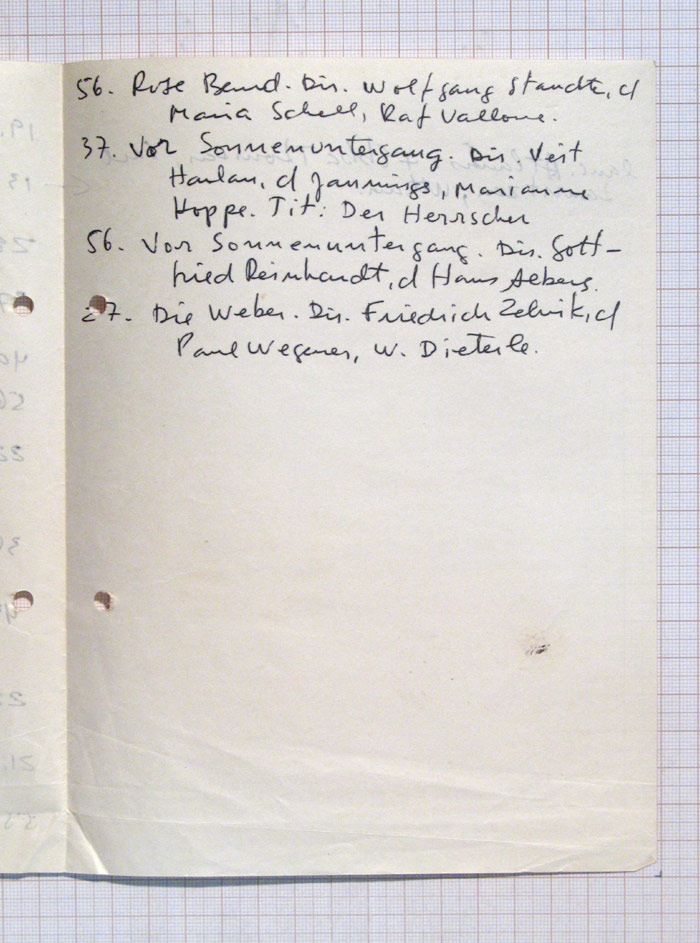 56. Rose Bernd. Dir. Wolfgang Staudte, d
Maria Schell, Raf Vallone.
37. Vor Sonnenuntergang. Dir. Veit
Harlan, d Jannings, Marianne
Hoppe. Tit: Der Herrscher
56. Vor Sonnenuntergang. Dir. Gott-
fried Reinhardt, d Hans Albers.
27. Die Weber. Dir. Friedrich Zelnik, d
Paul Wegener, W. Dieterle.